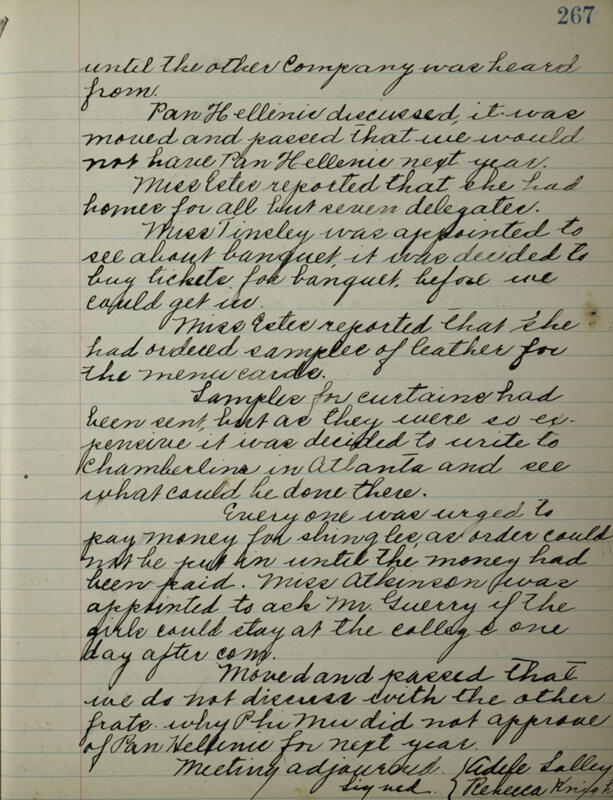 267
until the other Company was heard
from.
Pan Hellenic discussed, it was
moved and passed that we would
not have Pan Hellenic next year.
Miss Estes reported that she had
homes for all but seven delegates.
Miss Tinsley was appointed to
see about banquet, it was decided to
buy tickets for banquet, before we
could get in.
Miss Estes reported that she
had ordered samples of leather for
the menu cards.
Samples for curtains had
been sent, but as they were so ex-
pensive it was decided to write to
Chamberlins in Atlanta and see
what could be done there.
Everyone was urged to
pay money for shingles, as order could
not be put in until the money had
been paid. Miss Atkinson was
appointed to ask Mr. Guerry if the
girls could stay at the college one
day after com.
Moved and passed that
we do not discuss with the other
frats. why Phi Mu did not approve
of Pan Hellenic for next year.
Meeting adjourned. { Adele Salley
Signed { Rebecca Knight